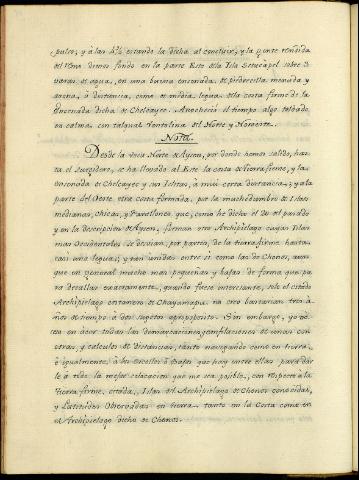 pulco, y á las 4½ estando la dicha al concluir, y la gente rendida
dimos fondo en la parte Este de la Isla sobre 3
varas de agua, en una buena ensenada de piedrecilla menuda y
arena, á distancia, como de media legua de la costa firme de la
ensenada dicha de Chelcayec. Anochecio el tiempo algo toldado
en calma con tal qual ventolina del Norte y Noroeste.
Nota.
Desde la boca Norte de Aysen, por donde hemos salido, has-
ta el Surgidero, se ha llevado al Este la costa de tierra firme, y la
ensenada de Chelcayec y sus Islitas, á muy corta distancia; y a la
parte del Oeste otra costa formada, por la muchedumbre de Islas
medianas, chicas, y Farellones que, como he dicho el 20 del pasado
y en la descripcion de Aysen, forman otro Archipielago cuyas Islas
mas Occidentales se desvian, por partes, de la tierra firme hasta
casi una legua; y tan unidas entre si como las de Chonos, aun-
que en general mucho mas pequeñas y bajas de forma que pa-
ra detallar exactamente, quando fuese interesante, solo el citado
Archipielago entonces de Chayamapu no creo bastarian tres a-
ños de tiempo á dos sugetos aproposito. Sin embargo, yo pi-
enso en hacer todas las demarcaciones, enfilaciones de unas con
otras, y calculos de distancias, tanto navegando como en tierra,
é igualmente, á los escollos ó bajos que hay entre ellas para dar-
le á todo la mejor colocacion que me sea posible, con respecto á la
tierra firme, citada, Islas del Archipielago de Chonos conocidas,
y Latitudes Observadas en tierra tanto en la Costa como en
el Archipielago dicho de Chonos.